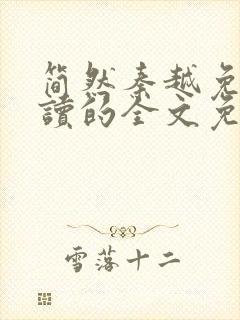 简然秦越免
讀的全文免
雪落十二